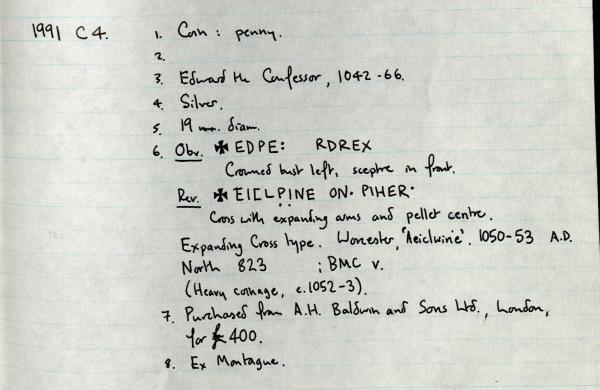 1991 C4.
1. Coin : penny.
2.
3. Edward the Confessor, 1042-66.
4. Silver.
5. 19 mm. diam.
6. Obv. ✠ EDPE: RDREX
Crowned bust left, sceptre in front.
Rev. ✠ EICLPINE ON· PIHER·
Cross with expanding arms and pellet centre.
Expanding Cross type. Worcester, 'Aeiclwine'. 1050-53 A.D.
North 823 ; BMC v.
(Heavy coinage, c.1052-3).
7. Purchased from A.H. Baldwin and Sons Ltd., London,
for £400.
8. Ex Montague.